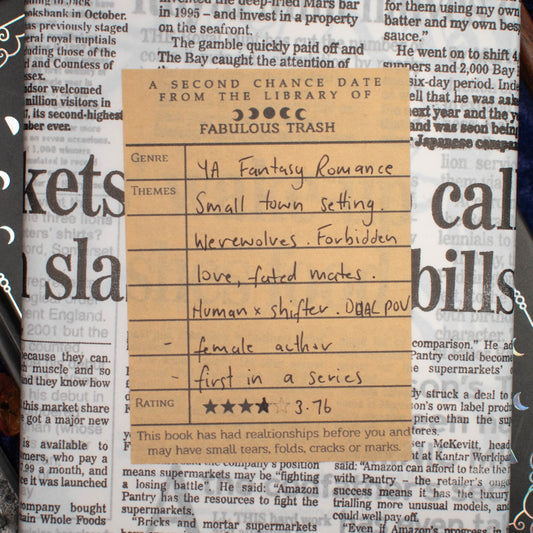 oksbank in October.
as previously staged
ral royal nuptials
uding those of the
d and Countess of
ssex.
dsor welcomed
million visitors in
, its second-highest
ber ever.
invented the deep-fried Mars bar
in 1995 – and invest in a property
on the seafront.
The gamble quickly paid off and
The Bay caught the attention of
for them using my own
batter and my own bes
sauce."
He went on to shift 4
suppers and 2,000 Bay
six-day period. Inde
ell that he was aske
next year and the ye
and was soon being
Japanese compan
A SECOND CHANCE DATE
FROM THE LIBRARY OF
FABULOUS TRASH
GENRE YA Fantasy Romance
THEMES Small town setting.
Werewolves. Forbidden
love, fated mates.
Human x shifter. DUAL POV
- female author
- first in a series
RATING ★★★★☆ 3.76
This book has had realtionships before you and
may have small tears, folds, cracks or marks.
kets
n sla
cal
bills
ecause they can.
h muscle and so
nd they know how
his market share
got a major new
is available to
mers, who pay a
7.99 a month, and
ce it was launched
ompany bought
ain Whole Foods
the company's position
means supermarkets may be "fighting
a losing battle". He said: "Amazon
Pantry has the resources to fight the
supermarkets.
"Bricks and mortar supermarkets
comparison." He ad
Pantry could become
e supermarkets'
dy struck a deal to
son's own label produ
price than the sup
er McKevitt, head
at Kantar Worldpa
said: "Amazon can afford to take thei
with Pantry - the retailer's ongo
success means it has the luxury
trialling more unusual models, and
could well pay off.
"Even if Amazon's progress in